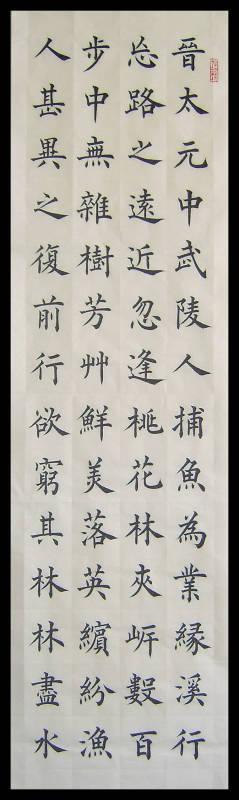 晉太元中武陵人捕魚為業緣溪行
忘路之遠近忽逢桃花林夾岸數百
步中無雜樹芳艸鮮美落英繽紛漁
人甚異之復前行欲窮其林林盡水